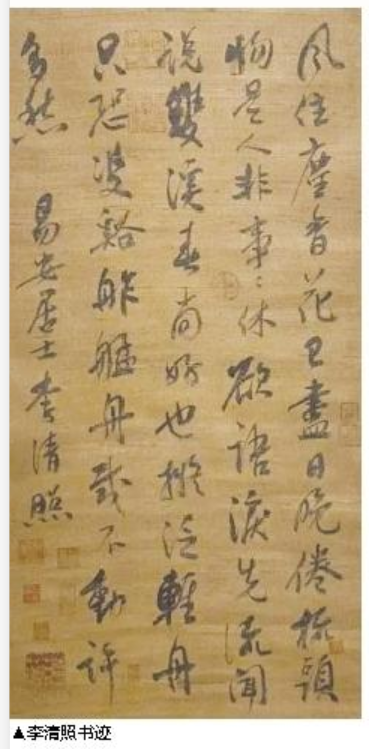 風住塵香花已盡日晚倦梳頭
物是人非事々休欲語淚先流聞
說雙溪春尚好也擬泛輕舟
只恐雙谿舴艋舟載不動許
多愁 易安居士李清照
▲李清照书迹